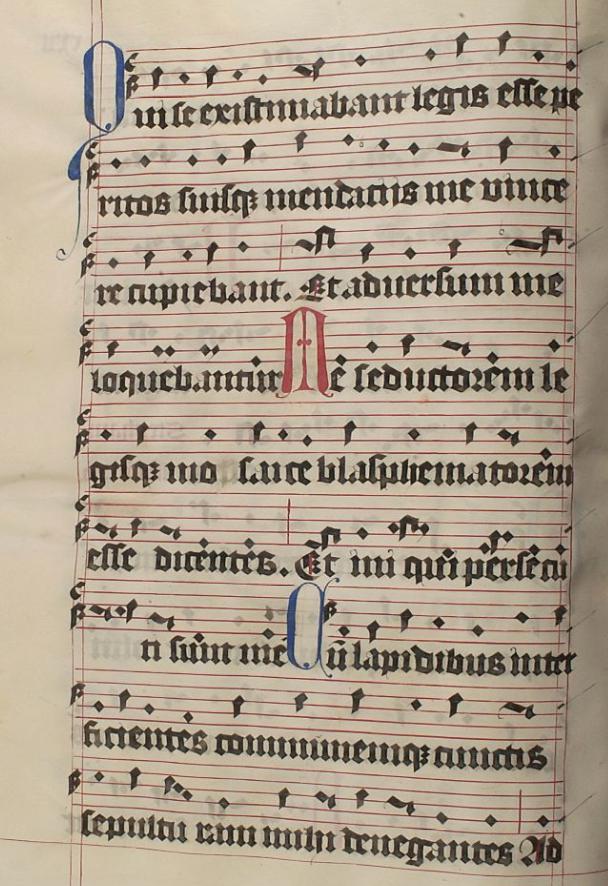 Qui se existimabant legis esse pe
ritos suisqꝫ mendatiis me vince
re cupiebant. Et aduersum me
loquebantur Me seductorem le
gisqꝫ mo saice blasphematorem
esse dicentes. Et ini qui persecu
ti sunt me Cū lapidibus inter
ficientes communemqꝫ cunctis
sepultu ram mihi denegantes Ad